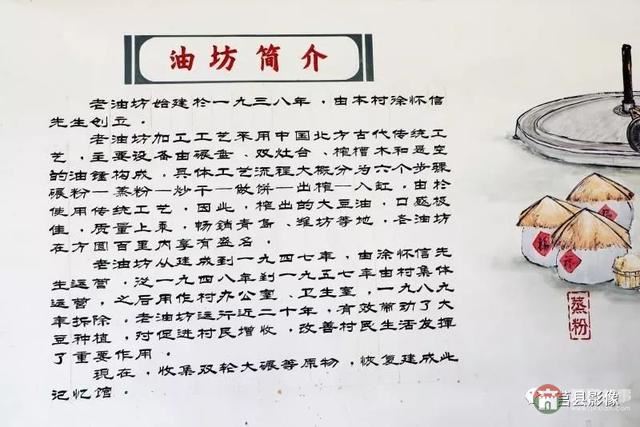 油坊简介
老油坊始建於一九三八年，由本村涂怀信
先生创立。
老油坊加工工艺采用中国北方古代传统工
艺，主要设备由碾盘、双灶台、榨槽木和悬空
的油锤构成，具体工艺流程大概分为六个步骤
碾粉—蒸粉—炒干—做饼—出榨—入缸。由於
使用传统工艺，因此，榨出的大豆油，口感极
佳，质量上乘，畅销青岛、潍坊等地，各油坊
在方圆百里内享有盛名。
老油坊从建成到一九四七年，由涂怀信先
生运营，从一九四八年到一九五七年由村集体
运营，之后用作村办公室、卫生室，一九八九
年拆除。老油坊运行近二十年，有效带动了大
豆种植，对促进村民增收，改善村民生活发挥
了重要作用。
现在，收集双轮大碾等原物，恢复建成此
记忆馆。
蒸粉
莒县影像